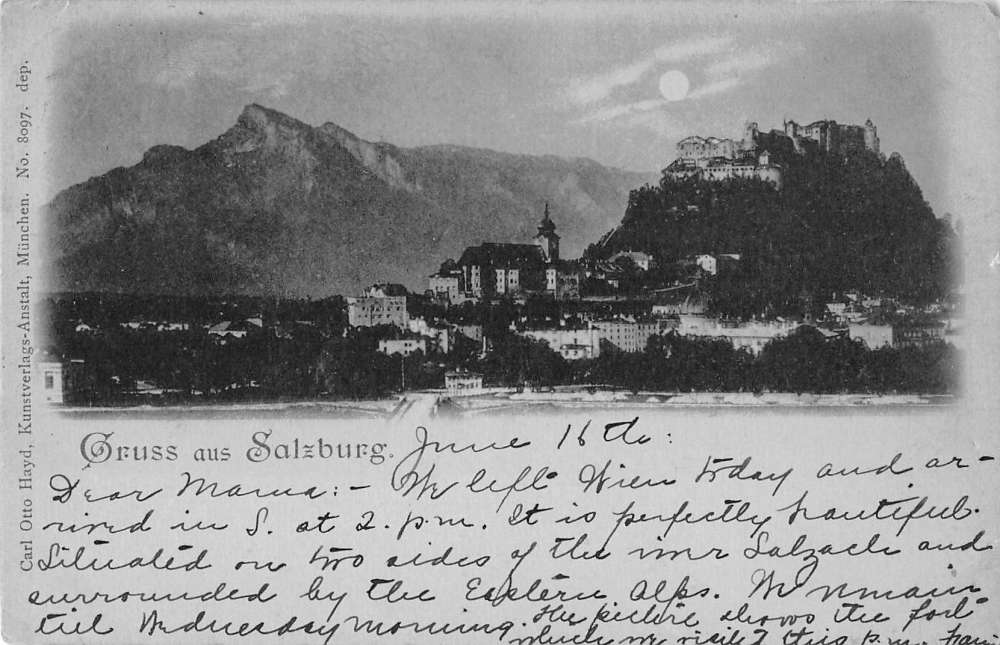 Carl Otto Hayd, Kunstverlags-Anstalt, München. No. 8097. dep.
Gruss aus Salzburg. June 16th:
Dear Mama:- We left Wien today and ar-
rived in S. at 2. p.m. It is perfectly beautiful.
Situated on two sides of the river Salzach and
surrounded by the Eastern Alps. We remain
till Wednesday morning. The picture shows the fort
which we visited this p.m.